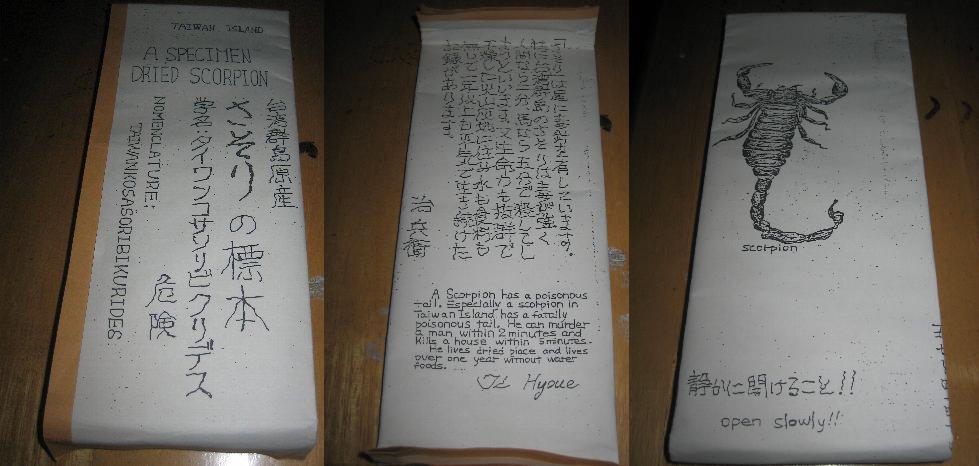 TAIWAN ISLAND
A SPECIMEN
DRIED SCORPION
台湾群島原産
さそりの標本
学名:タイワンコサソリビクリデス
危険
NOMENCLATURE:
TAIWANIKOSASORIBIKURIDES
さそりは尾に毒針を有しています。
特に台湾群島のさそりは毒が強く
人間なら二分、馬なら五分で殺してし
まうといいます。又生命力も抜群で
火山岩地に住み水も食料も
無しで一年以上も平気で生き続けた
記録があります。
治兵衛
A Scorpion has a poisonous
tail. Especially a scorpion in
Taiwan Island has a fatally
poisonous tail. He can murder
a man within 2 minutes and
Kills a house within 5minutes.
He lives dried place and lives
over one year without water
foods.
Hyoue
scorpion
静かに開けること!!
open slowly!!